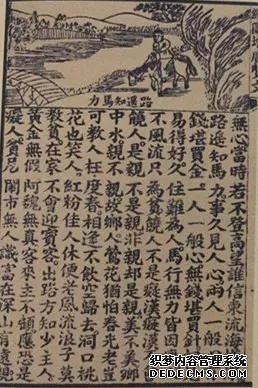 路遙知馬力
無心當時若不登高望誰信東流海
路遙知馬力事久見人心兩人一般
錢堪買金一人一般心無錢堪買針
易得好久住難為人馬行無力皆因
不風流只為貧饒人不是癡漢癡漢
饒人是親不是親非親却是親美不美鄉
中水親不親故鄉人鶯花猶怕春光老豈
可教人枉度春相逢不飲空歸去洞口桃
花也笑人紅粉佳人休便老風流浪子莫
教貧在家不會迎賓客出路方知少主人
黃金無假阿魏無真客來主不顧應恐是
癡人貧居鬧市無 識富在深山有遠親
织梦内容管理系统
DEDECMS.COM